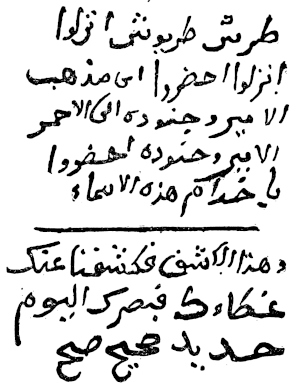 طرش طريوش انزلوا
انزلوا احضروا الى مذهب
الامير وجنوده الى الاحمر
الامير وجنوده احضروا
يا خدام هذه الاسماء
وهذا الكشف فكشفنا عنك
غطاءك فبصرك اليوم
حديد صحيح صحيح